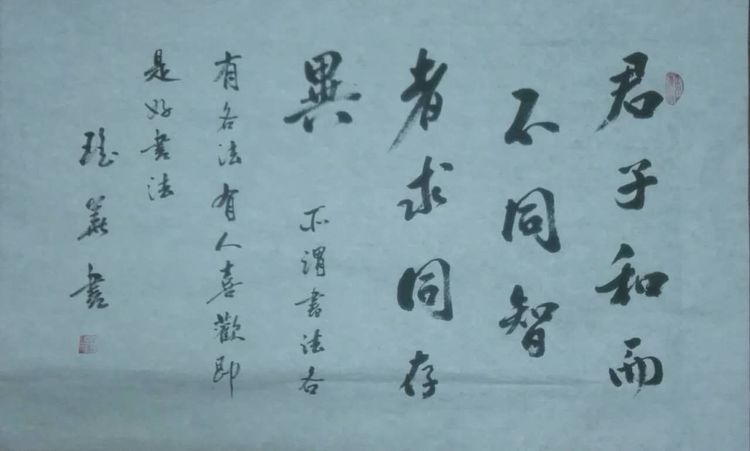 君子和而
不同智
者求同存
異
所谓書法各
有各法有人喜歡即
是好書法
書